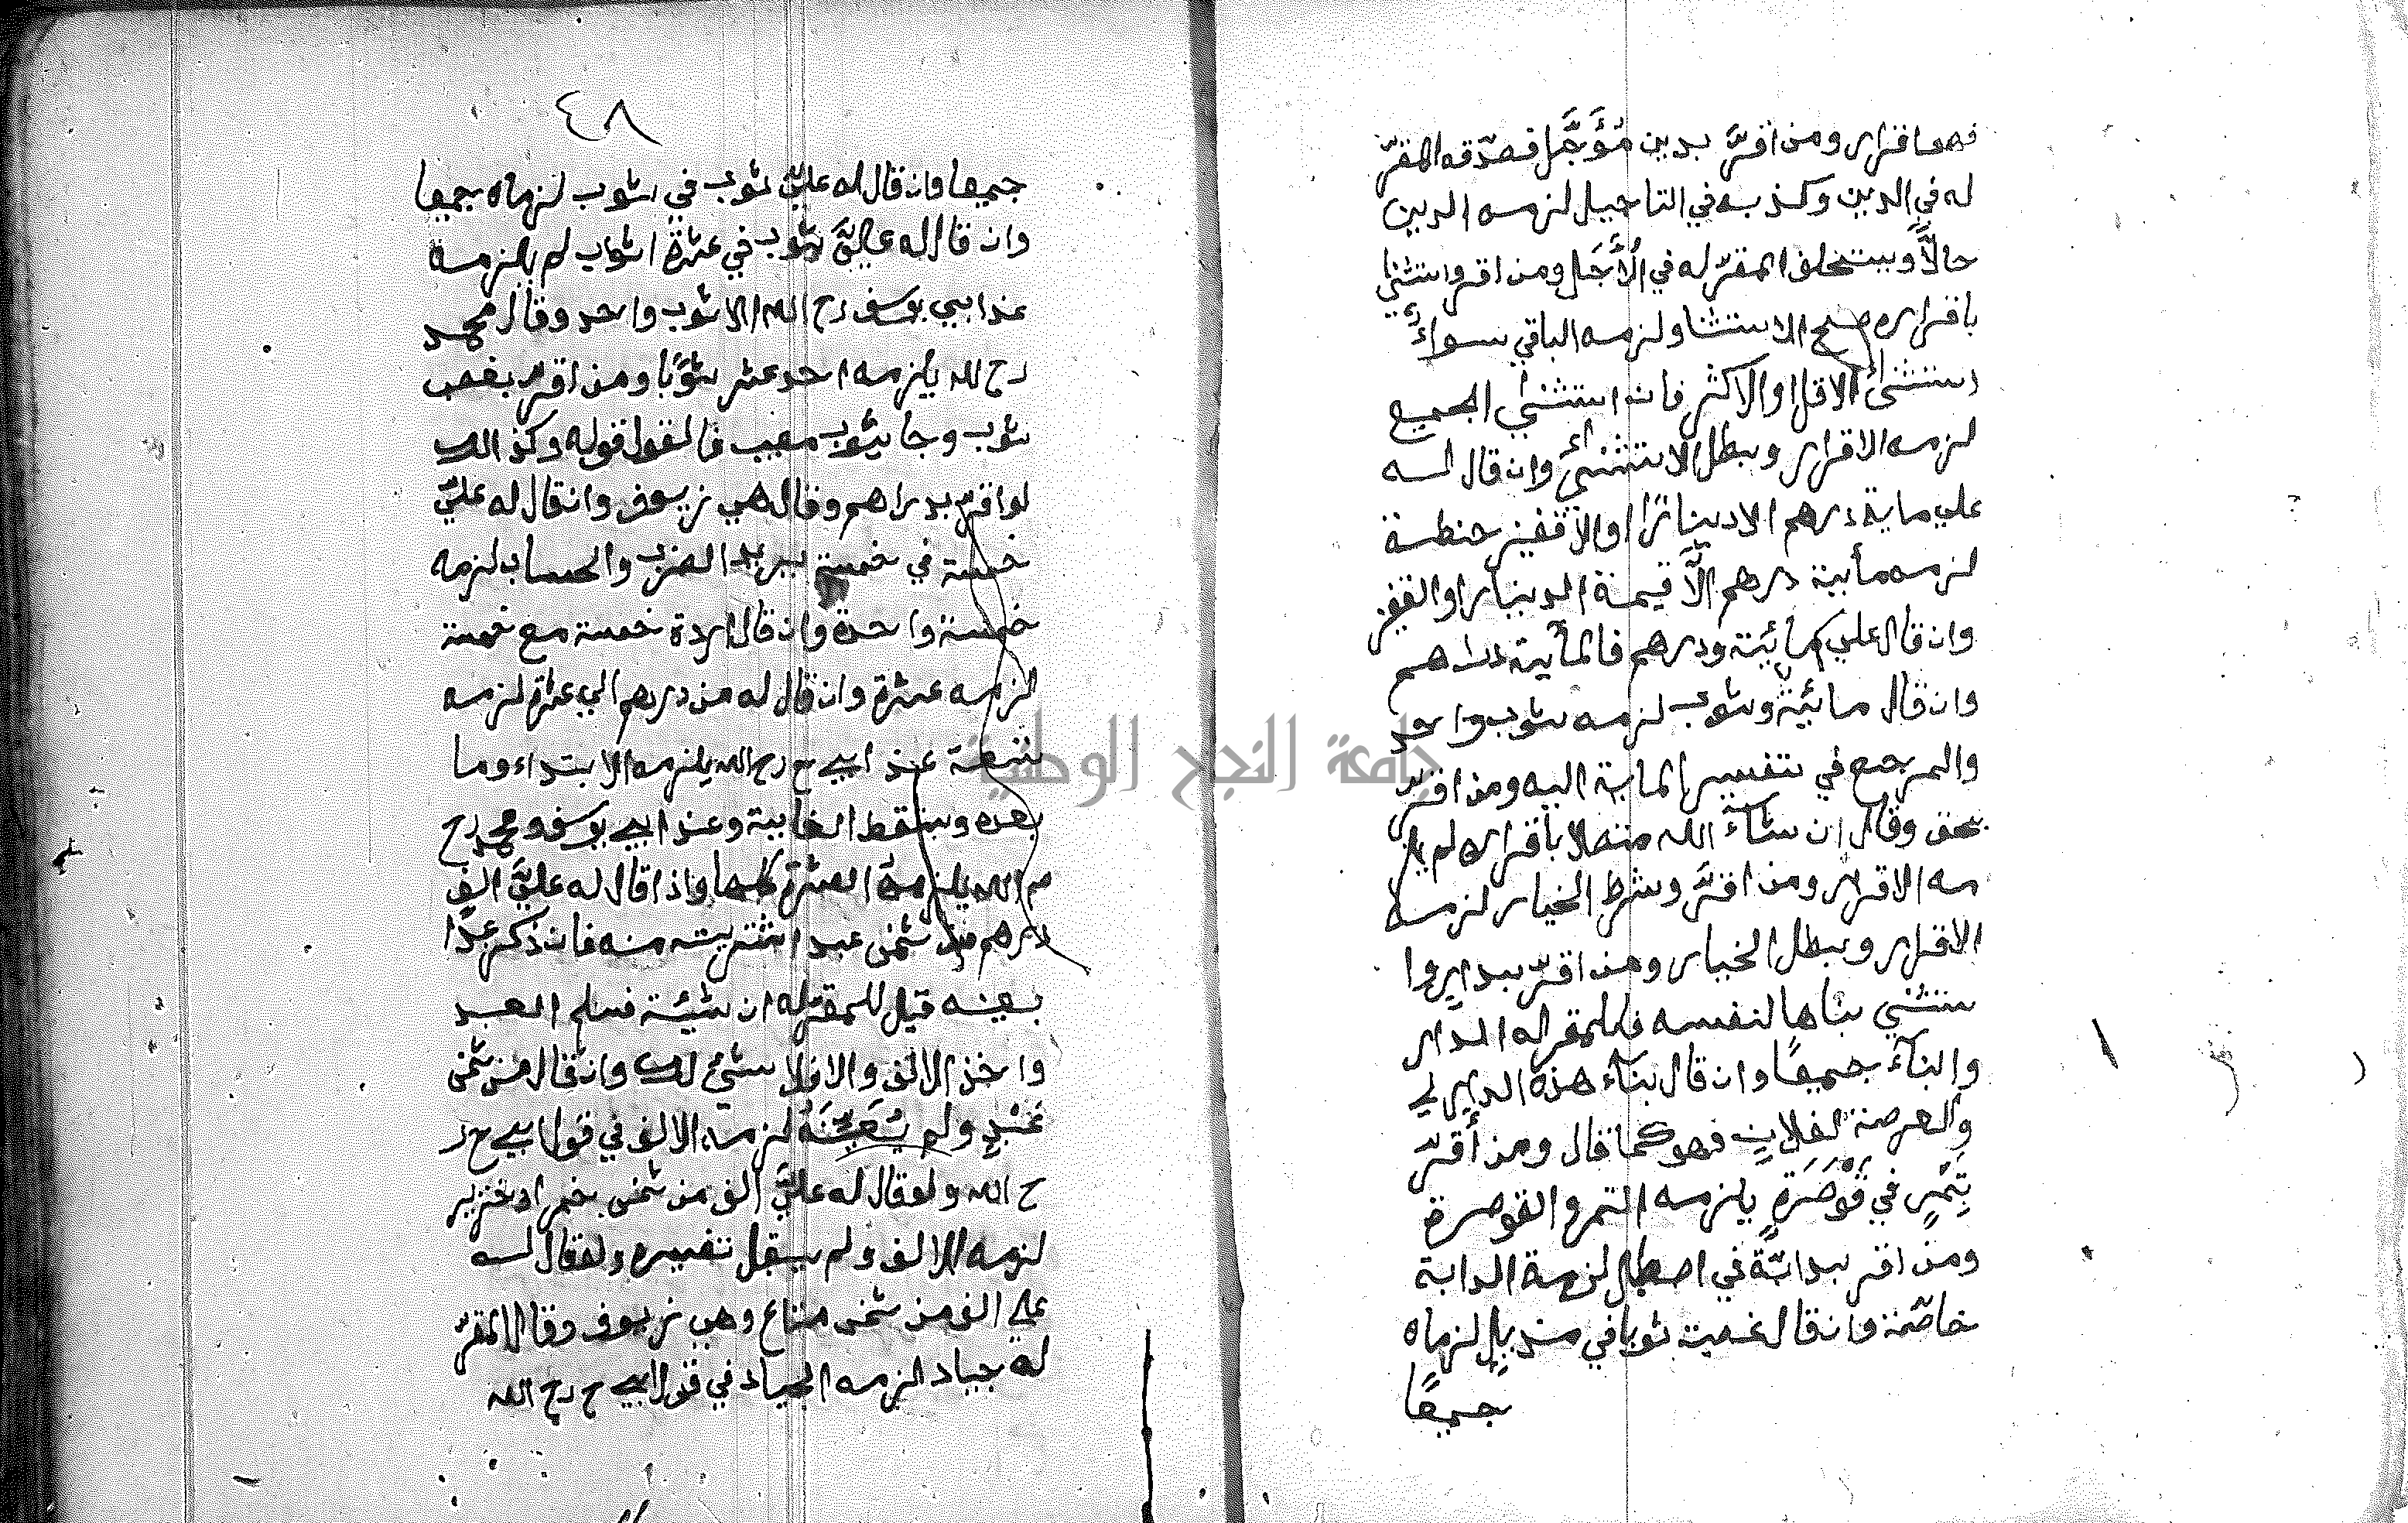 فهو اقرار ومن اقرّ بدين مُؤَجَّل فصدّقه المقرّ
له في الدين وكذبه في التاجيل لزمه الدين
حالاً ويستحلف المقرّ له في الأَجَل ومن اقر واستثني
باقراره صح الاستثنا ولزمه الباقي سواءً
استثنئ الاقل او الاكثر فان استثني الجميع
لزمه الاقرار وبطل الاستثنئ وان قال له
علي ماية درهم الا دينارًا او الا قفيز حنطة
لزمه مأية درهم الّا قيمة الدينار او القفيز
وان قال علي مائية ودرهم فالمأية دراهم
وان قال مائية وثوب لزمه ثوب واحد
والمرجع في تفسير الماية اليه ومن اقرّ
بحق وقال ان شآء الله متصلا باقراره لم يلز
مه الاقرار ومن اقرّ وشرط الخيار لزمه
الاقرار وبطل الخيار ومن اقرّ بدار وا
ستثني بناها لنفسه فللمقر له الدار
والبنآء جميعًا وان قال بنآء هذه الدار لي
والعرصة لفلان فهو كما قال ومن أقرّ
بِتَمْرٍ في قَوْصَرَةٍ يلزمه التمر والقوصرة
ومن اقر بدابّة في اصطبل لزمه الدابة
خاصّة وان قال غصبت ثوبا في منديل لزماه
جميعًا
جامعة النجاح الوطنية
٤٨
جميعا وان قال له عليّ ثوب في ثوب لزماه جميعا
وان قال له عليَّ ثوب في عشرة اثواب لم يلزمه
عند ابي يوسف رح الله الا ثوب واحد وقال محمد
رح الله يلزمه احد عشر ثوبًا ومن اقرّ بغصب
ثوب وجا بثوب معيب فالقول قوله وكذالك
لو اقرّ بدراهم وقال هي زيوف وان قال له عليّ
خمسة في خمسة يريد الضرب والحساب لزمه
خمسة واحدة وان قال اردة خمسة مع خمسة
لزمه عشرة وان قال له من درهم الي عشرة لزمه
تسعة عند ابي ح رح الله يلزمه الابتداء وما
بعده ويسقط الغاية وعند ابي يوسف ومحمد رح
م الله يلزمه العشرة كلها واذا قال له عليَّ الف
درهم من ثمن عبد اشتريته منه فان ذكر عبدًا
بعينه قيل للمقرّ له ان شئة فسلم العبد
واخذ الالف والا فلا شيء لك وان قال من ثمن
عَبْدٍ ولم يُعَيِّنَهُ لزمه الالف في قول ابي ح ر
ح الله ولو قال له عليَّ الف من ثمن خمر او خنزير
لزمه الالف ولم يقبل تفسيره ولو قال له
علي الف من ثمن متاع وهي زيوف وقال المقرّ
له جياد لزمه الجياد في قول ابي ح رح الله